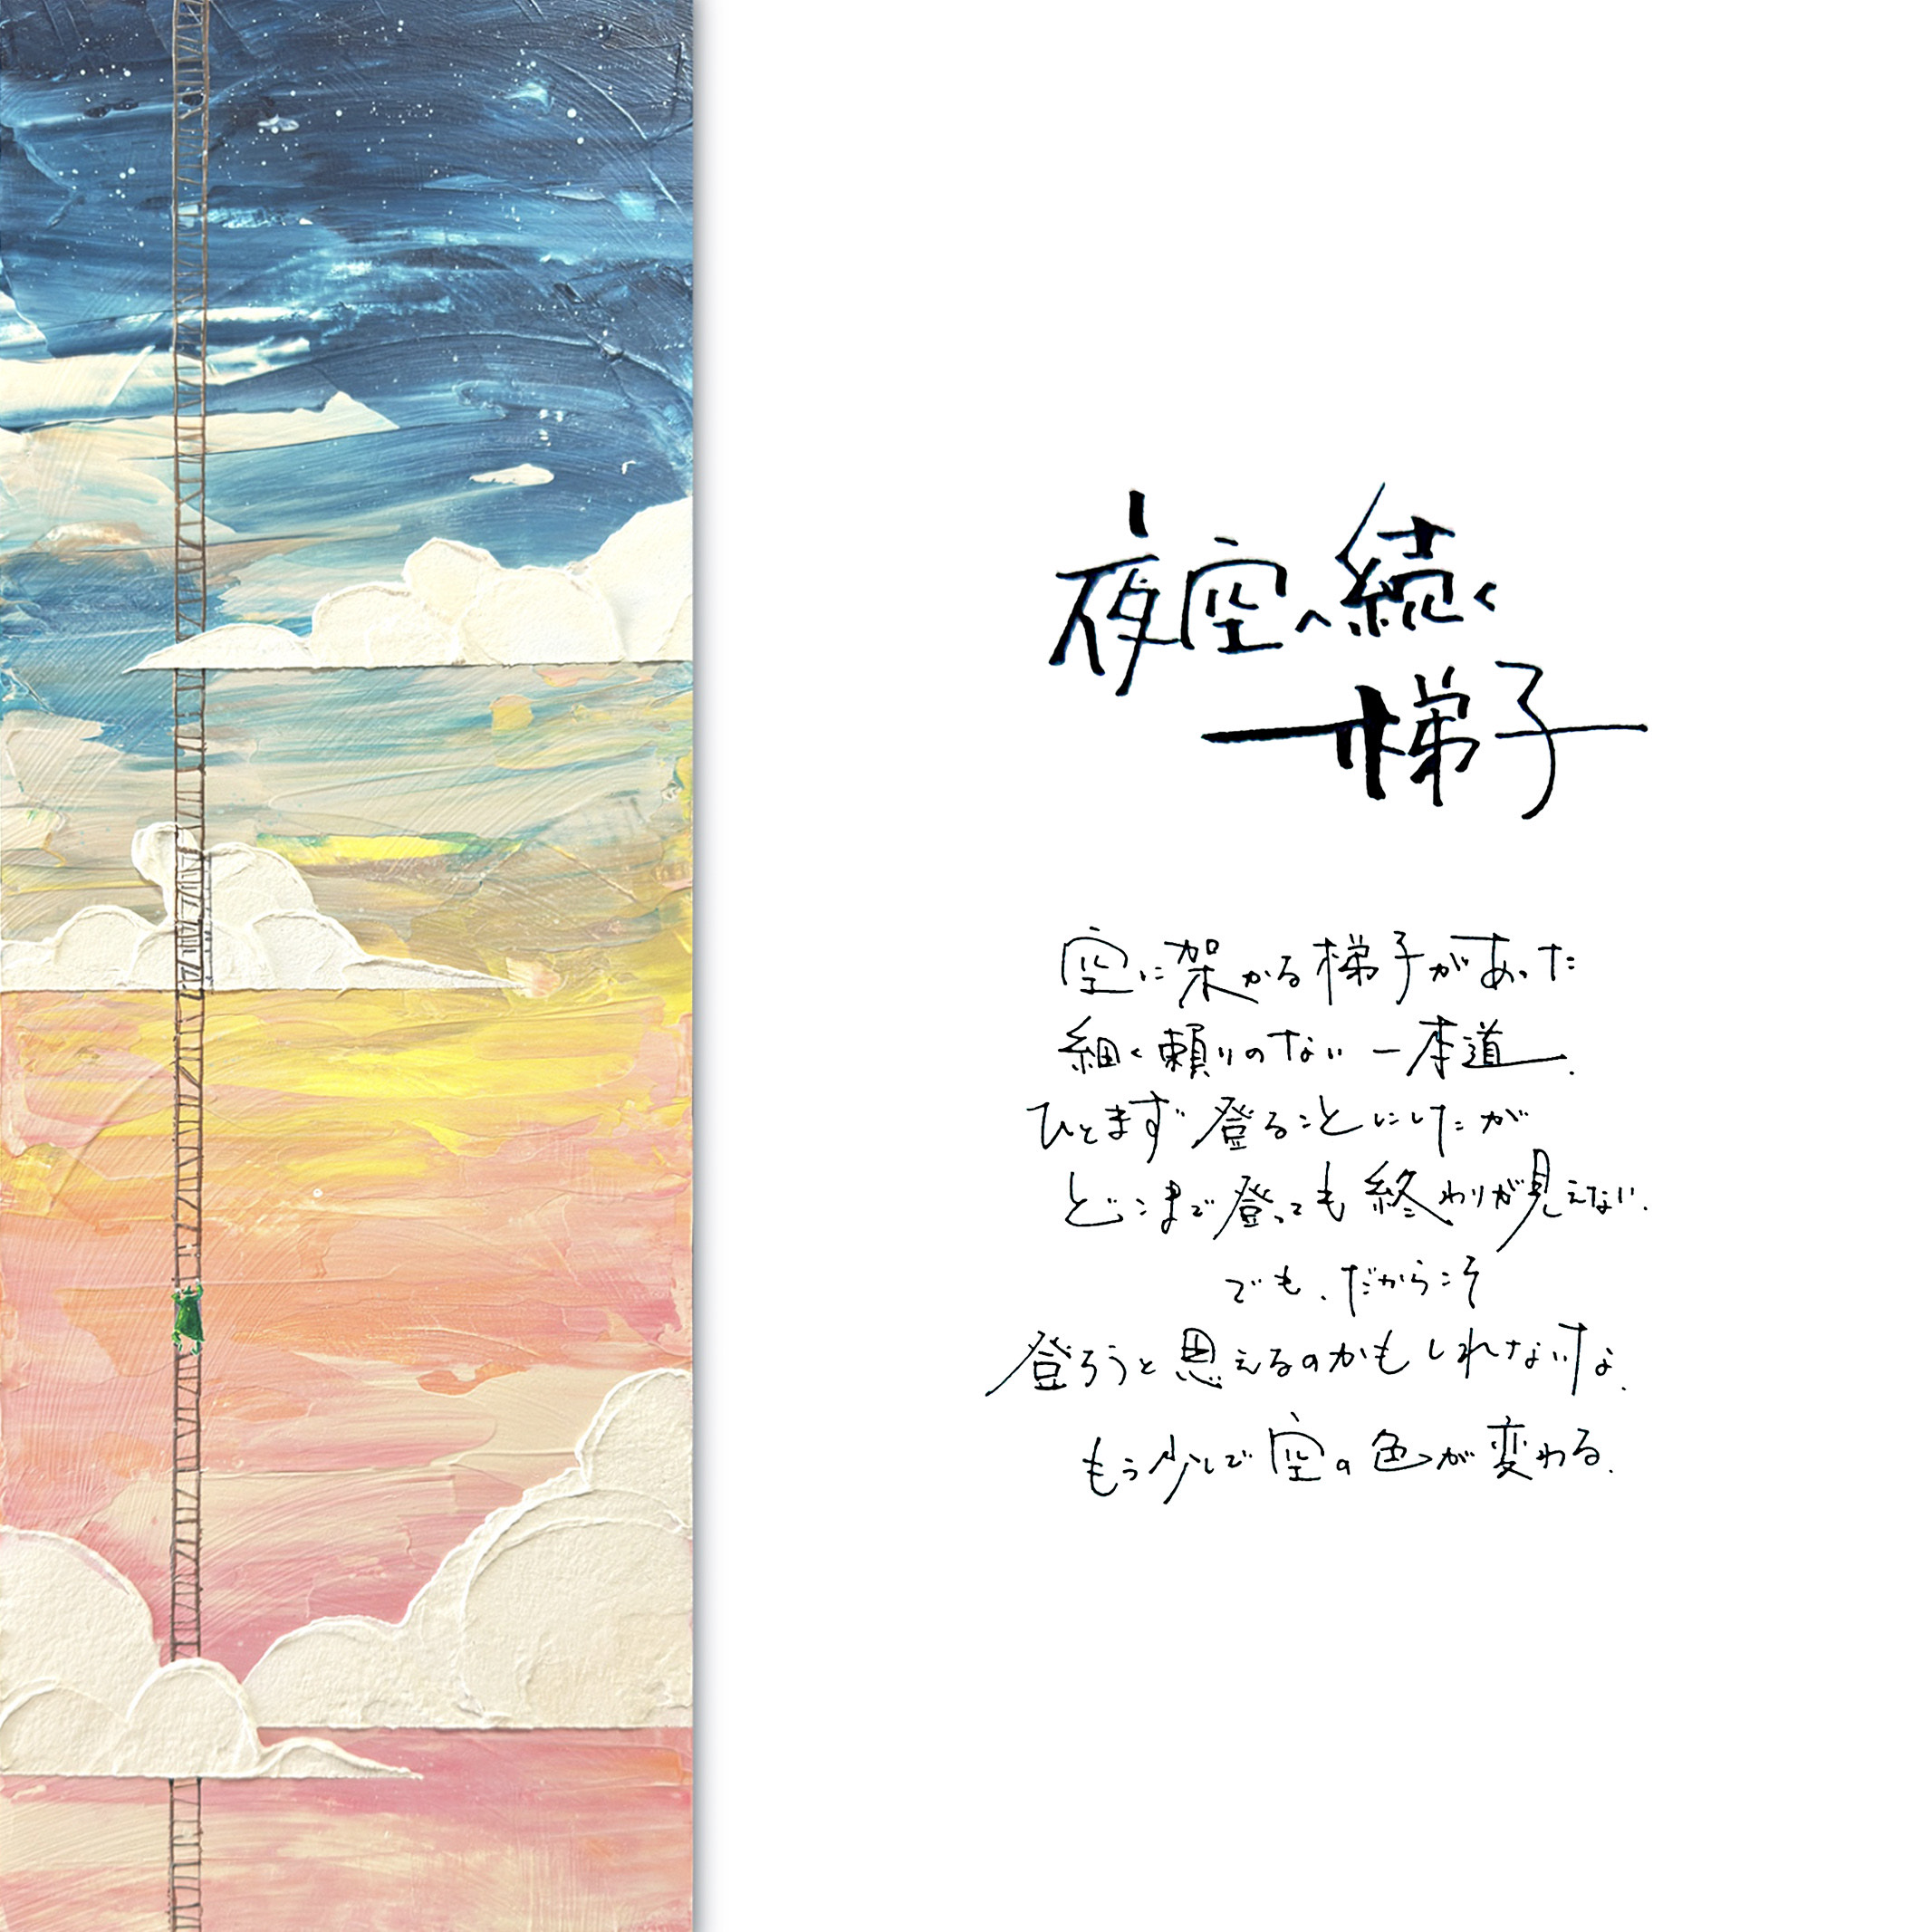 夜空へ続く
梯子
空に架かる梯子があった
細く頼りのない一本道.
ひとまず登ることにしたが
どこまで登っても終わりが見えない.
でも、だからこそ
登ろうと思えるのかもしれないな.
もう少しで空の色が変わる.